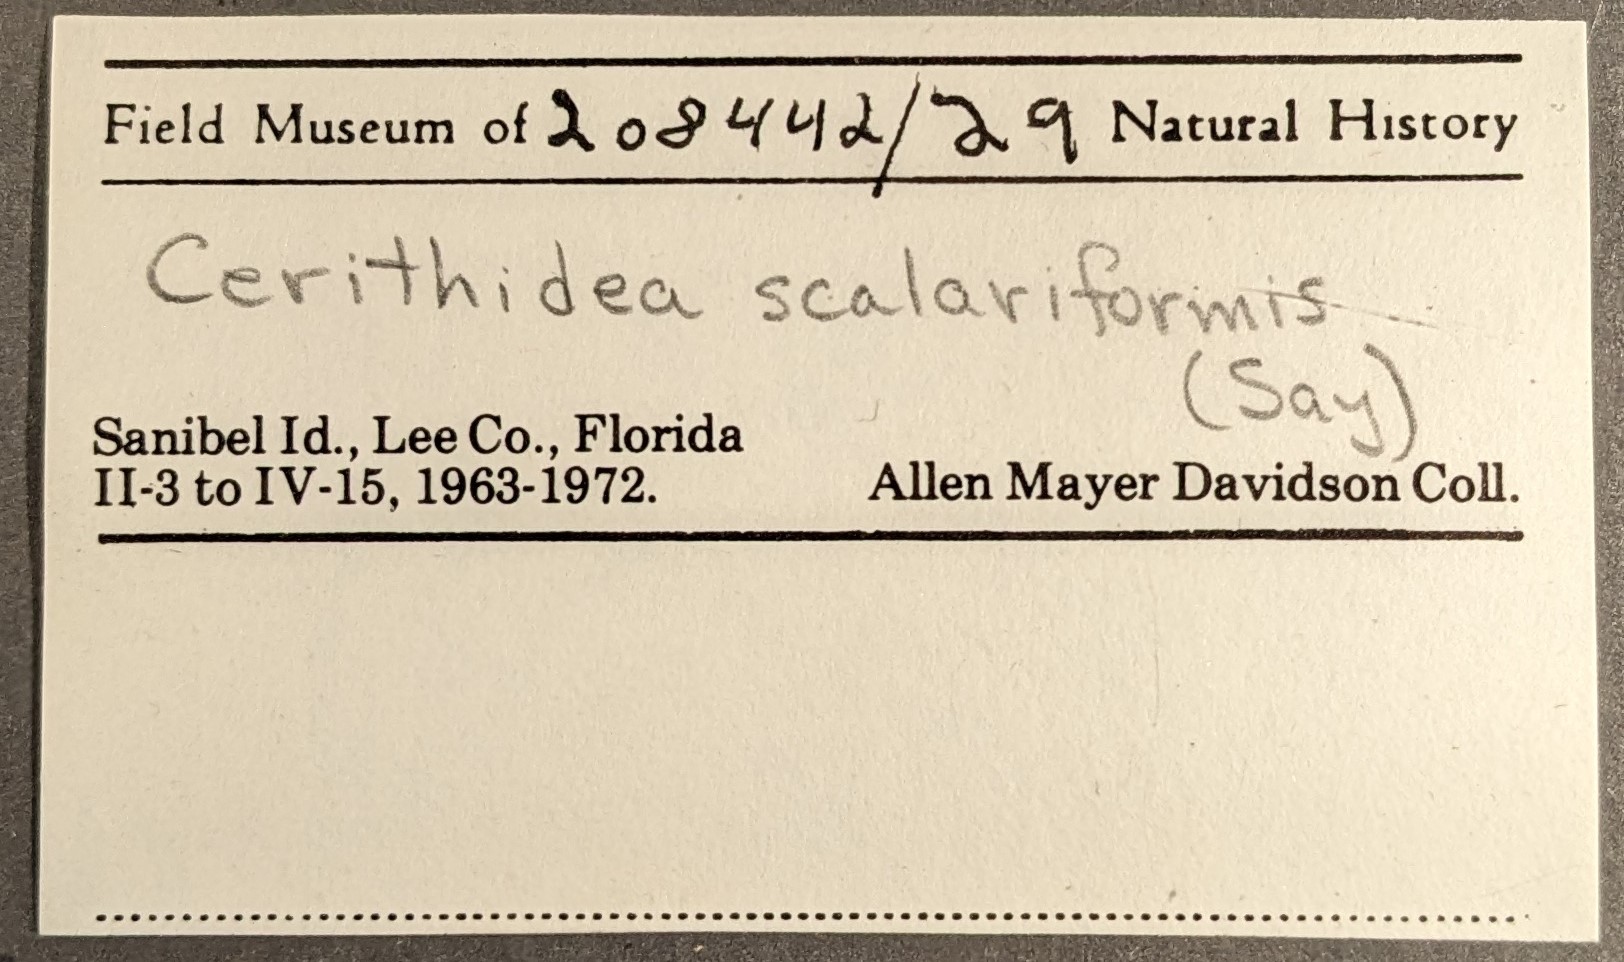 Field Museum of 208442/29 Natural History
Cerithidea scalariformis
(Say)
Sanibel Id., Lee Co., Florida
II-3 to IV-15, 1963-1972. Allen Mayer Davidson Coll.